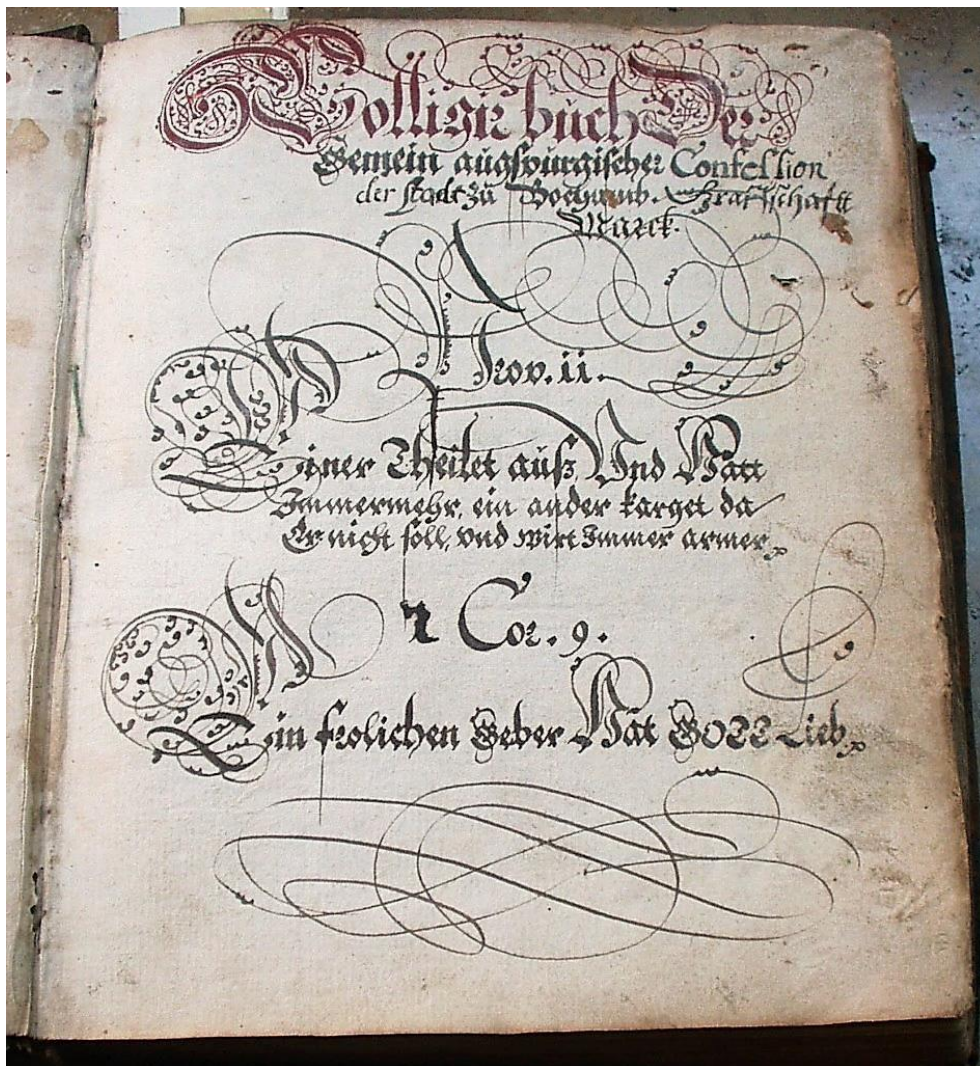 Kolligir buch Der
Gemein augspurgischer Confession
der stadt zu Bochumb. Graffschafft
Marck.
Prov. ii.
Einer Theilet auß, Und Hatt
Immermehr, ein ander karget da
Er nicht soll, vnd wirt Immer armer
2 Cor. 9.
Ein frolichen Geber Hat GOTT Lieb